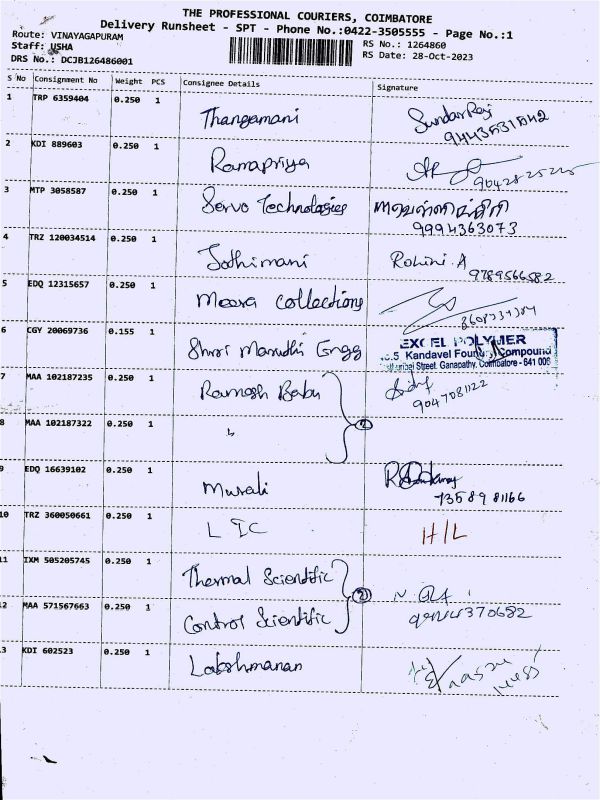 THE PROFESSIONAL COURIERS, COIMBATORE
Delivery Runsheet - SPT - Phone No.:0422-3505555 - Page No.:1
Route: VINAYAGAPURAM
Staff: USHA
RS No.: 1264860
DRS No.: DCJB126486001
RS Date: 28-Oct-2023
S No Consignment No Weight PCS Consignee Details Signature
1 TRP 6359404 0.250 1 Thangamani SundarRaj
9443531542
2 KDI 889603 0.250 1 Ramapriya
3 MTP 3058587 0.250 1 Servo Technologies
9994363073
4 TRZ 120034514 0.250 1 Jothimani Rohini.A
9789566582
5 EDQ 12315657 0.250 1 Meera Collections
6 CGY 20069736 0.155 1 Shri Maruthi Engg EXCEL POLYMER
Kandavel Foundry Compound
Street, Ganapathy, Coimbatore - 641 006
7 MAA 102187235 0.250 1 Ramesh Babu
9047081122
8 MAA 102187322 0.250 1 " 2
9 EDQ 16639102 0.250 1 Murali
73589 81166
10 TRZ 360050661 0.250 1 LIC H/L
11 IXM 505205745 0.250 1 Thermal Scientific
2
12 MAA 571567663 0.250 1 Control Scientific
13 KDI 602523 0.250 1 Lakshmanan